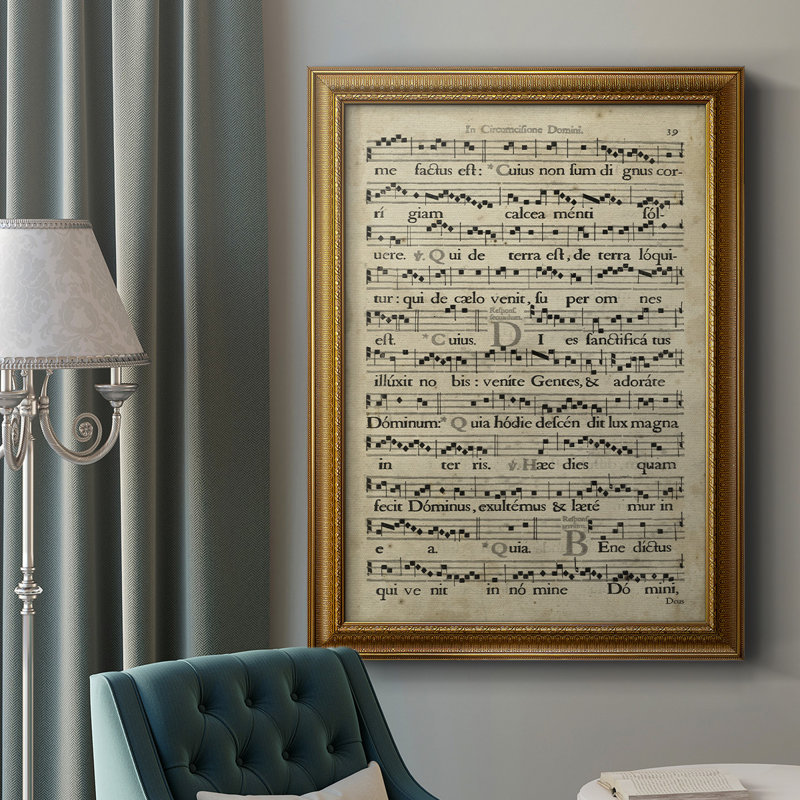 In Circumciſione Domini. 39
me factus eſt: *Cuius non ſum di gnus cor-
rí giam calcea ménti ſól-
uere. ℣. Qui de terra eſt, de terra lóqui-
tur: qui de cælo venit, ſu per om nes
Reſponſ.
ſecundum.
eſt. *Cuius. DI es ſanctificá tus
illúxit no bis: venite Gentes, & adoráte
Dóminum: *Quia hódie deſcén dit lux magna
in ter ris. ℣. Hæc dies quam
fecit Dóminus, exultémus & læté mur in
Reſponſ.
e a. *Quia. BEne díctus
qui ve nit in nó mine Dó mini,
Deus